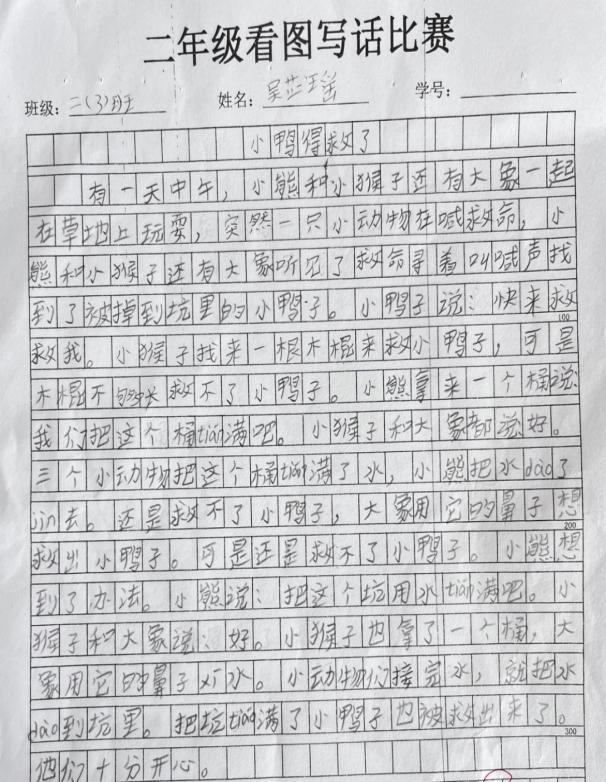 二年级看图写话比赛
班级：二(3)班 姓名： 学号：
小鸭得救了
有一天中午，小熊和小猴子还有大象一起
在草地上玩耍，突然一只小动物在喊救命，小
熊和小猴子还有大象听见了救命寻着叫喊声找
到了被掉到坑里的小鸭子。小鸭子说：快来救
100
救我。小猴子找来一根木棍来救小鸭子，可是
木棍不够长救不了小鸭子。小熊拿来一个桶说
我们把这个桶tián满吧。小猴子和大象都说好。
三个小动物把这个桶tián满了水，小熊把水dào了
jìn去。还是救不了小鸭子，大象用它的鼻子想
200
救出小鸭子。可是还是救不了小鸭子。小熊想
到了办法。小熊说：把这个坑用水tián满吧。小
猴子和大象说：好。小猴子也拿了一个桶，大
象用它的鼻子xī水。小动物们接完水，就把水
dào到坑里。把坑tián满了小鸭子也被救出来了。
300
他们十分开心。